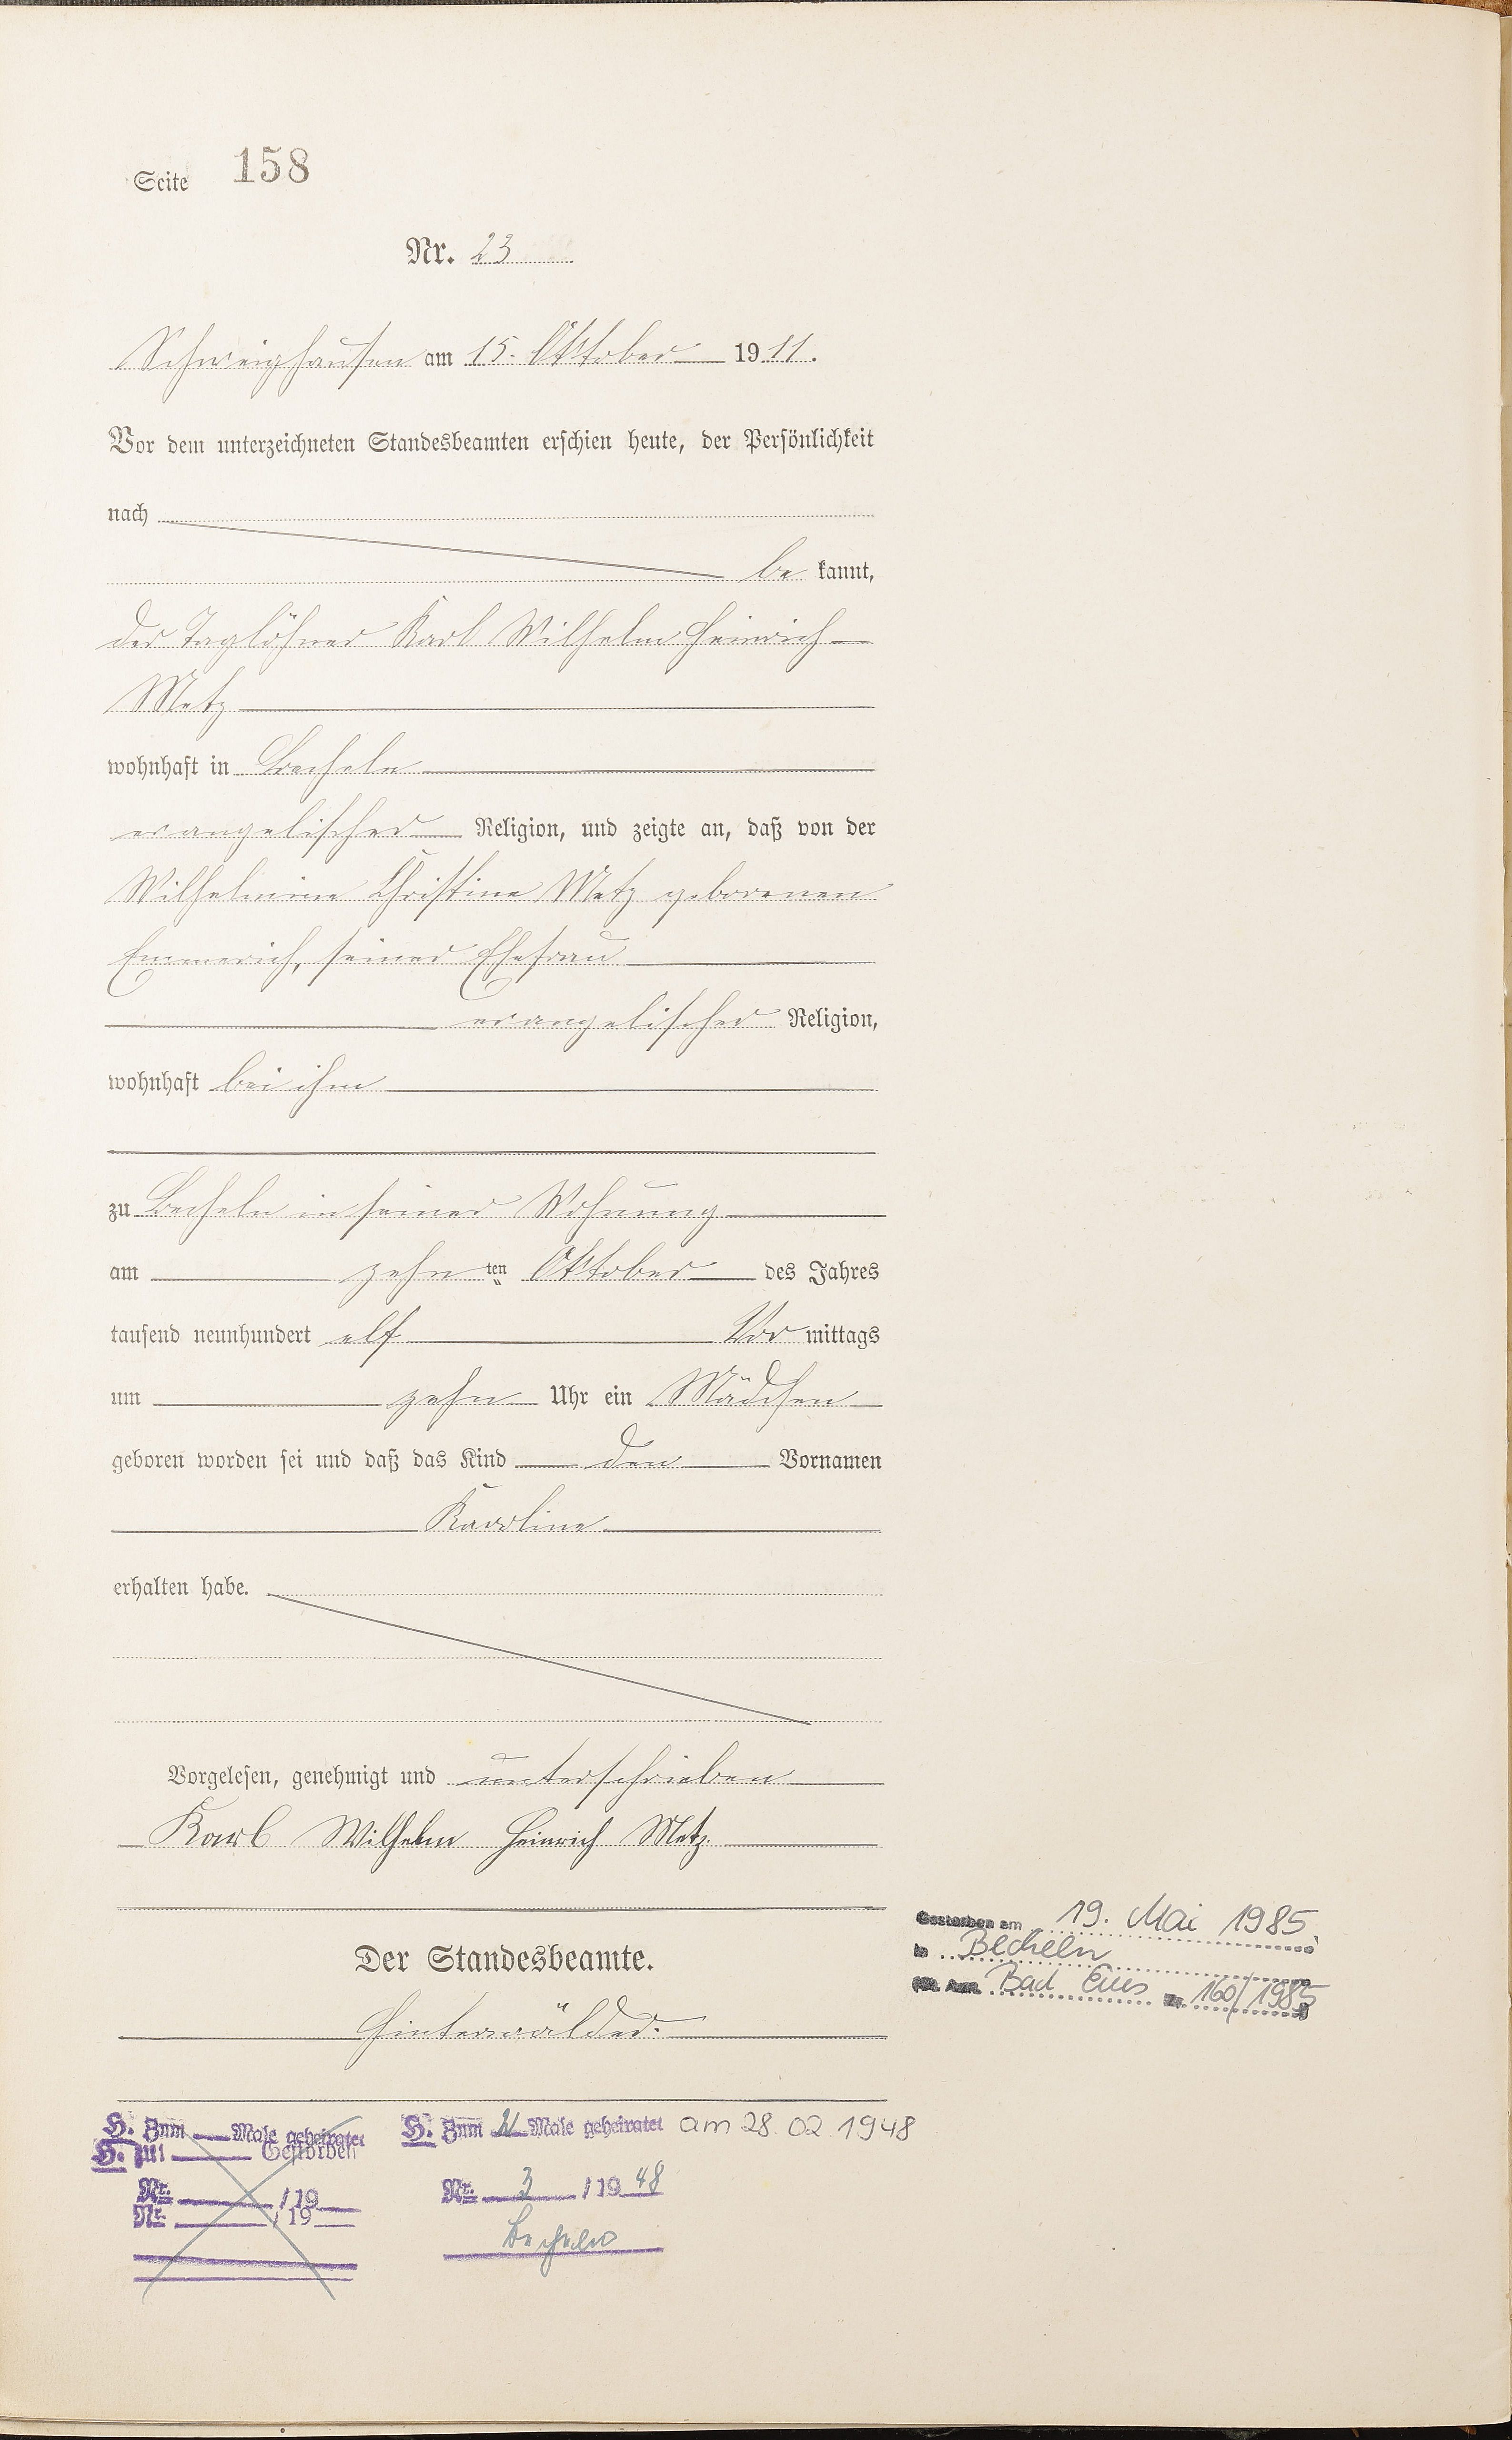 Seite 158
Nr. 23
Schweighausen am 15. Oktober 1911.
Vor dem unterzeichneten Standesbeamten erschien heute, der Persönlichkeit
nach
be kannt,
der Taglöhner Karl Wilhelm Heinrich
Metz
wohnhaft in Becheln
evangelischer Religion, und zeigte an, daß von der
Wilhelmine Christine Metz geborenen
Emmerich, seiner Ehefrau
evangelischer Religion,
wohnhaft bei ihm
zu Becheln in seiner Wohnung
am zehn ten Oktober des Jahres
tausend neunhundert elf Vor mittags
um zehn Uhr ein Mädchen
geboren worden sei und daß das Kind den Vornamen
Karoline
erhalten habe.
Vorgelesen, genehmigt und unterschrieben
Karl Wilhelm Heinrich Metz
Der Standesbeamte.
Hinterwälder.
Gestorben am 19. Mai 1985
in Becheln
Bad Ems Nr. 160/1985
H. Zum Male geheiratet
H. Gestorben
Nr. /19
Nr. /19
H. Zum Male geheiratet am 28.02.1948
Nr. 3 /1948
Becheln